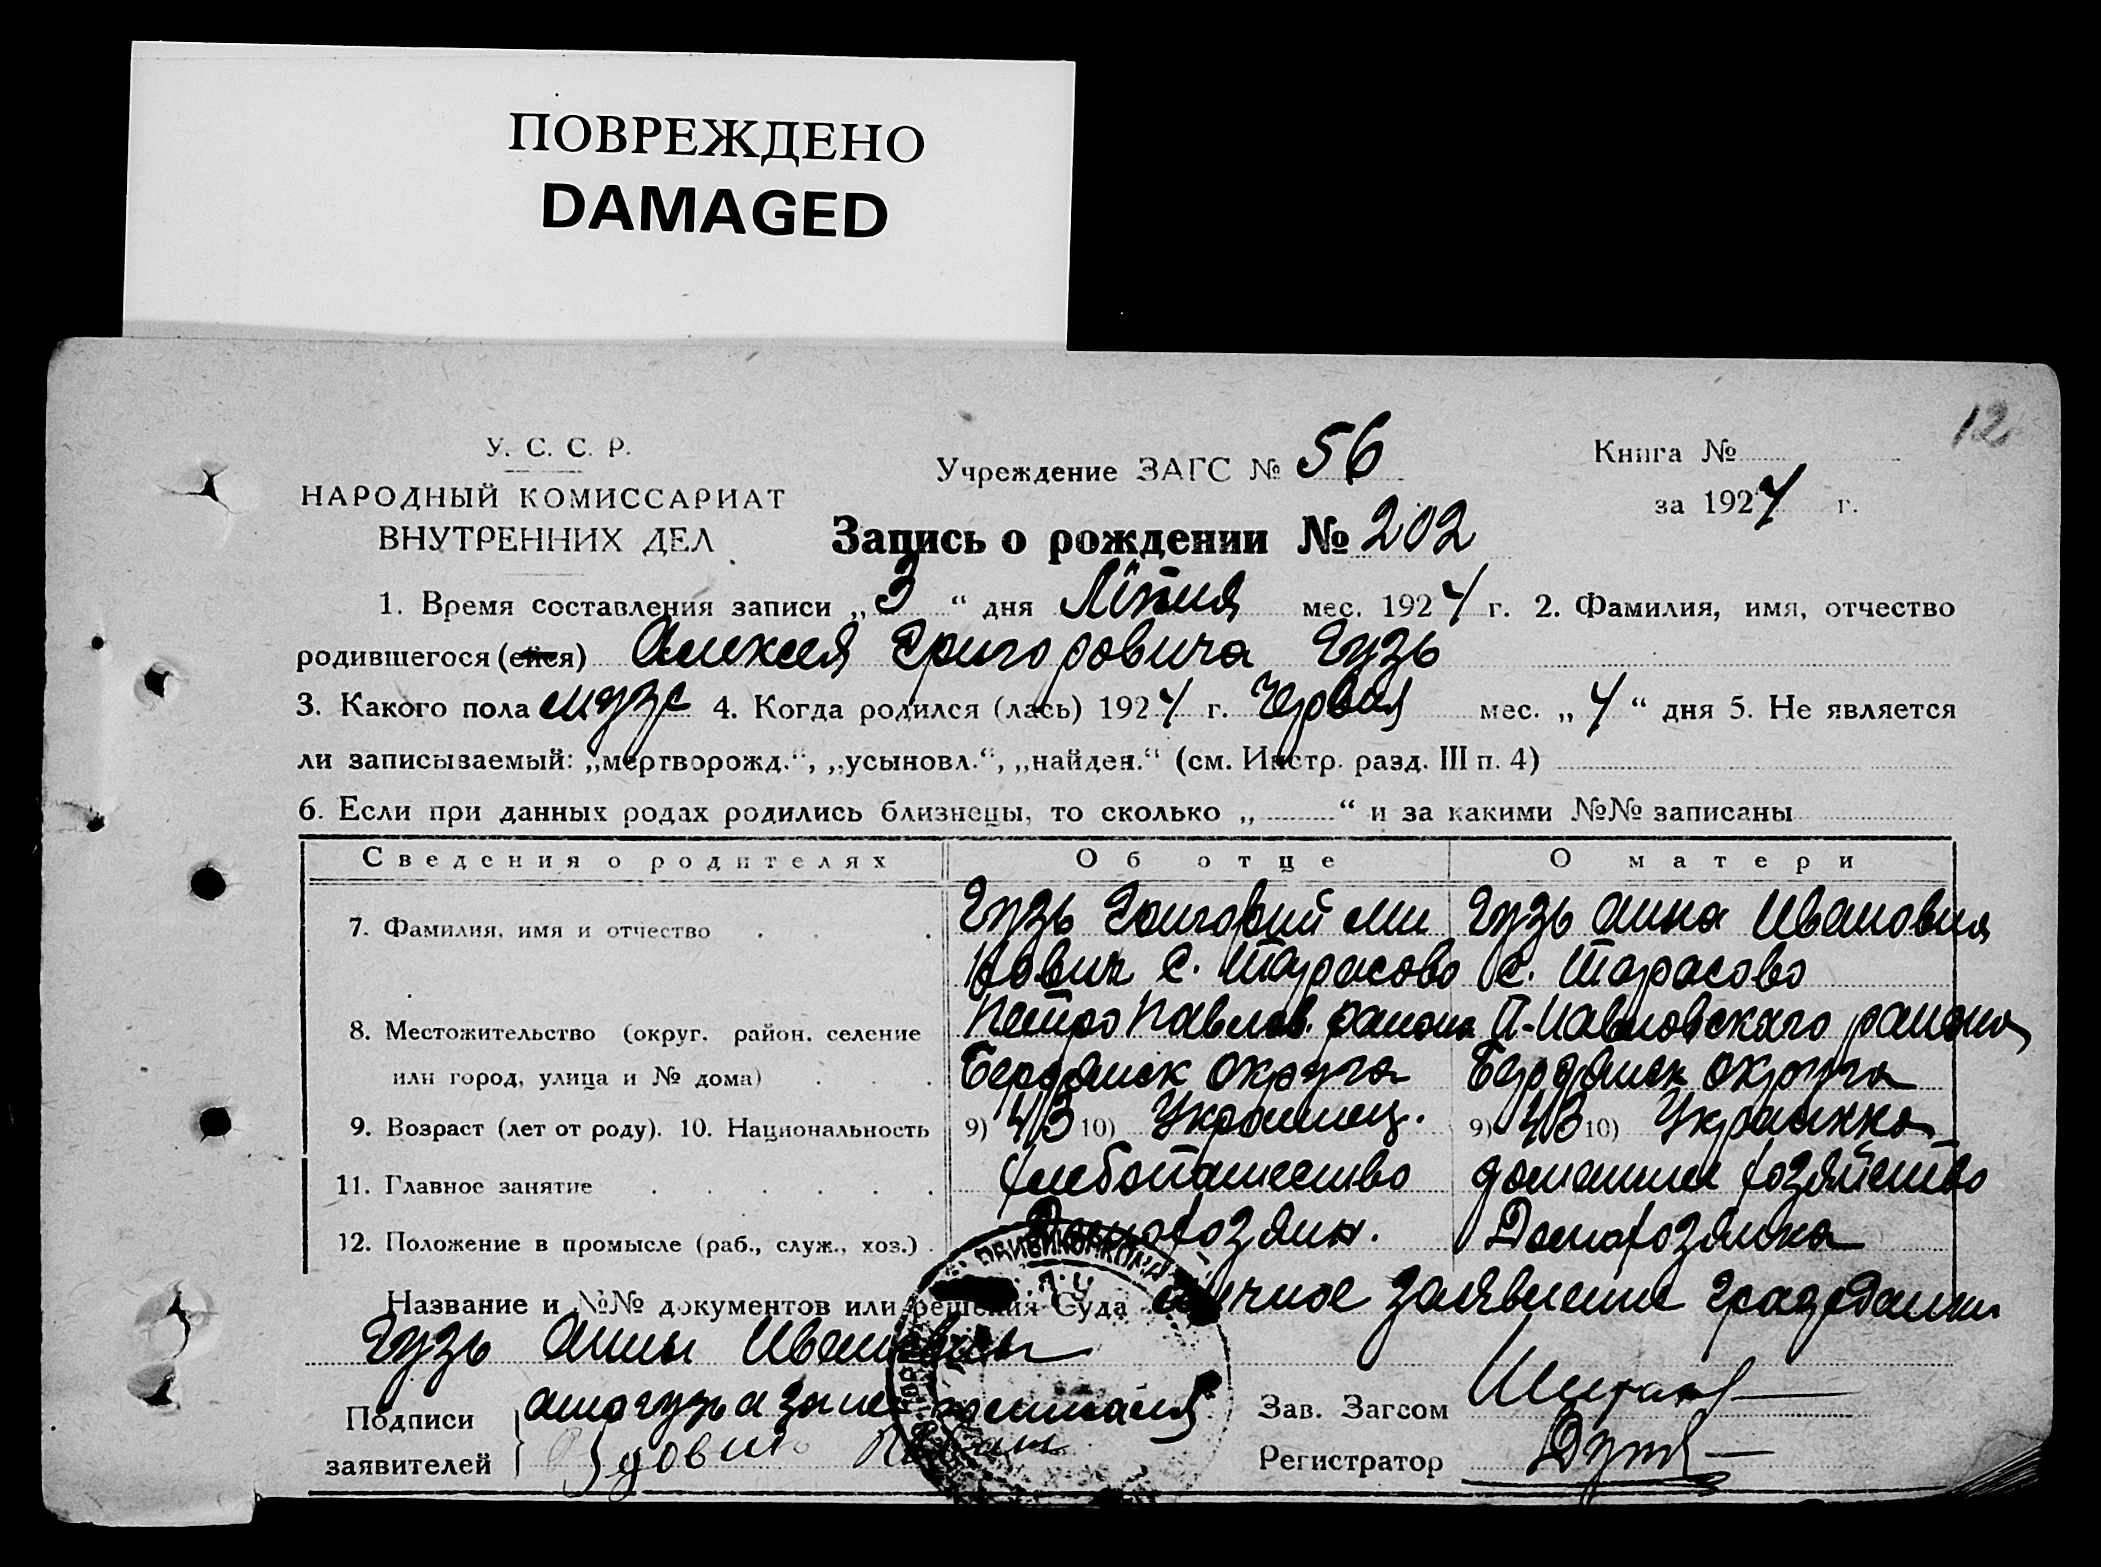 ПОВРЕЖДЕНО
DAMAGED
12
У. С. С. Р.
НАРОДНЫЙ КОМИССАРИАТ
ВНУТРЕННИХ ДЕЛ
Учреждение ЗАГС № 56
Книга №
за 1924 г.
Запись о рождении № 202
1. Время составления записи „3“ дня Липня мес. 1924 г. 2. Фамилия, имя, отчество
родившегося (ейся) Алексея Григоровича Гузь
3. Какого пола муж 4. Когда родился (лась) 1924 г. Червня мес. „4“ дня 5. Не является
ли записываемый: „мертворожд.“, „усыновл.“, „найден.“ (см. Инстр. разд. III п. 4)
6. Если при данных родах родились близнецы, то сколько „ “ и за какими №№ записаны
Сведения о родителях Об отце О матери
7. Фамилия, имя и отчество Гузь Григорий Ми Гузь Анна Ивановна
нович с. Тарасово с. Тарасово
8. Местожительство (округ, район, селение Петро Павлов. района П-Павловскаго района
или город, улица и № дома) Бердянск округа Бердянск округа
9. Возраст (лет от роду). 10. Национальность 9) 43 10) Украинец. 9) 43 10) Украинка
11. Главное занятие хлебопашество домашнее хозяйство
12. Положение в промысле (раб., служ., хоз.) Домохозяин. Домохозяйка
Название и №№ документов или решения Суда Личное заявление гражданки
Гузь Анны Ивановны
Подписи
заявителей
Зав. Загсом
Регистратор